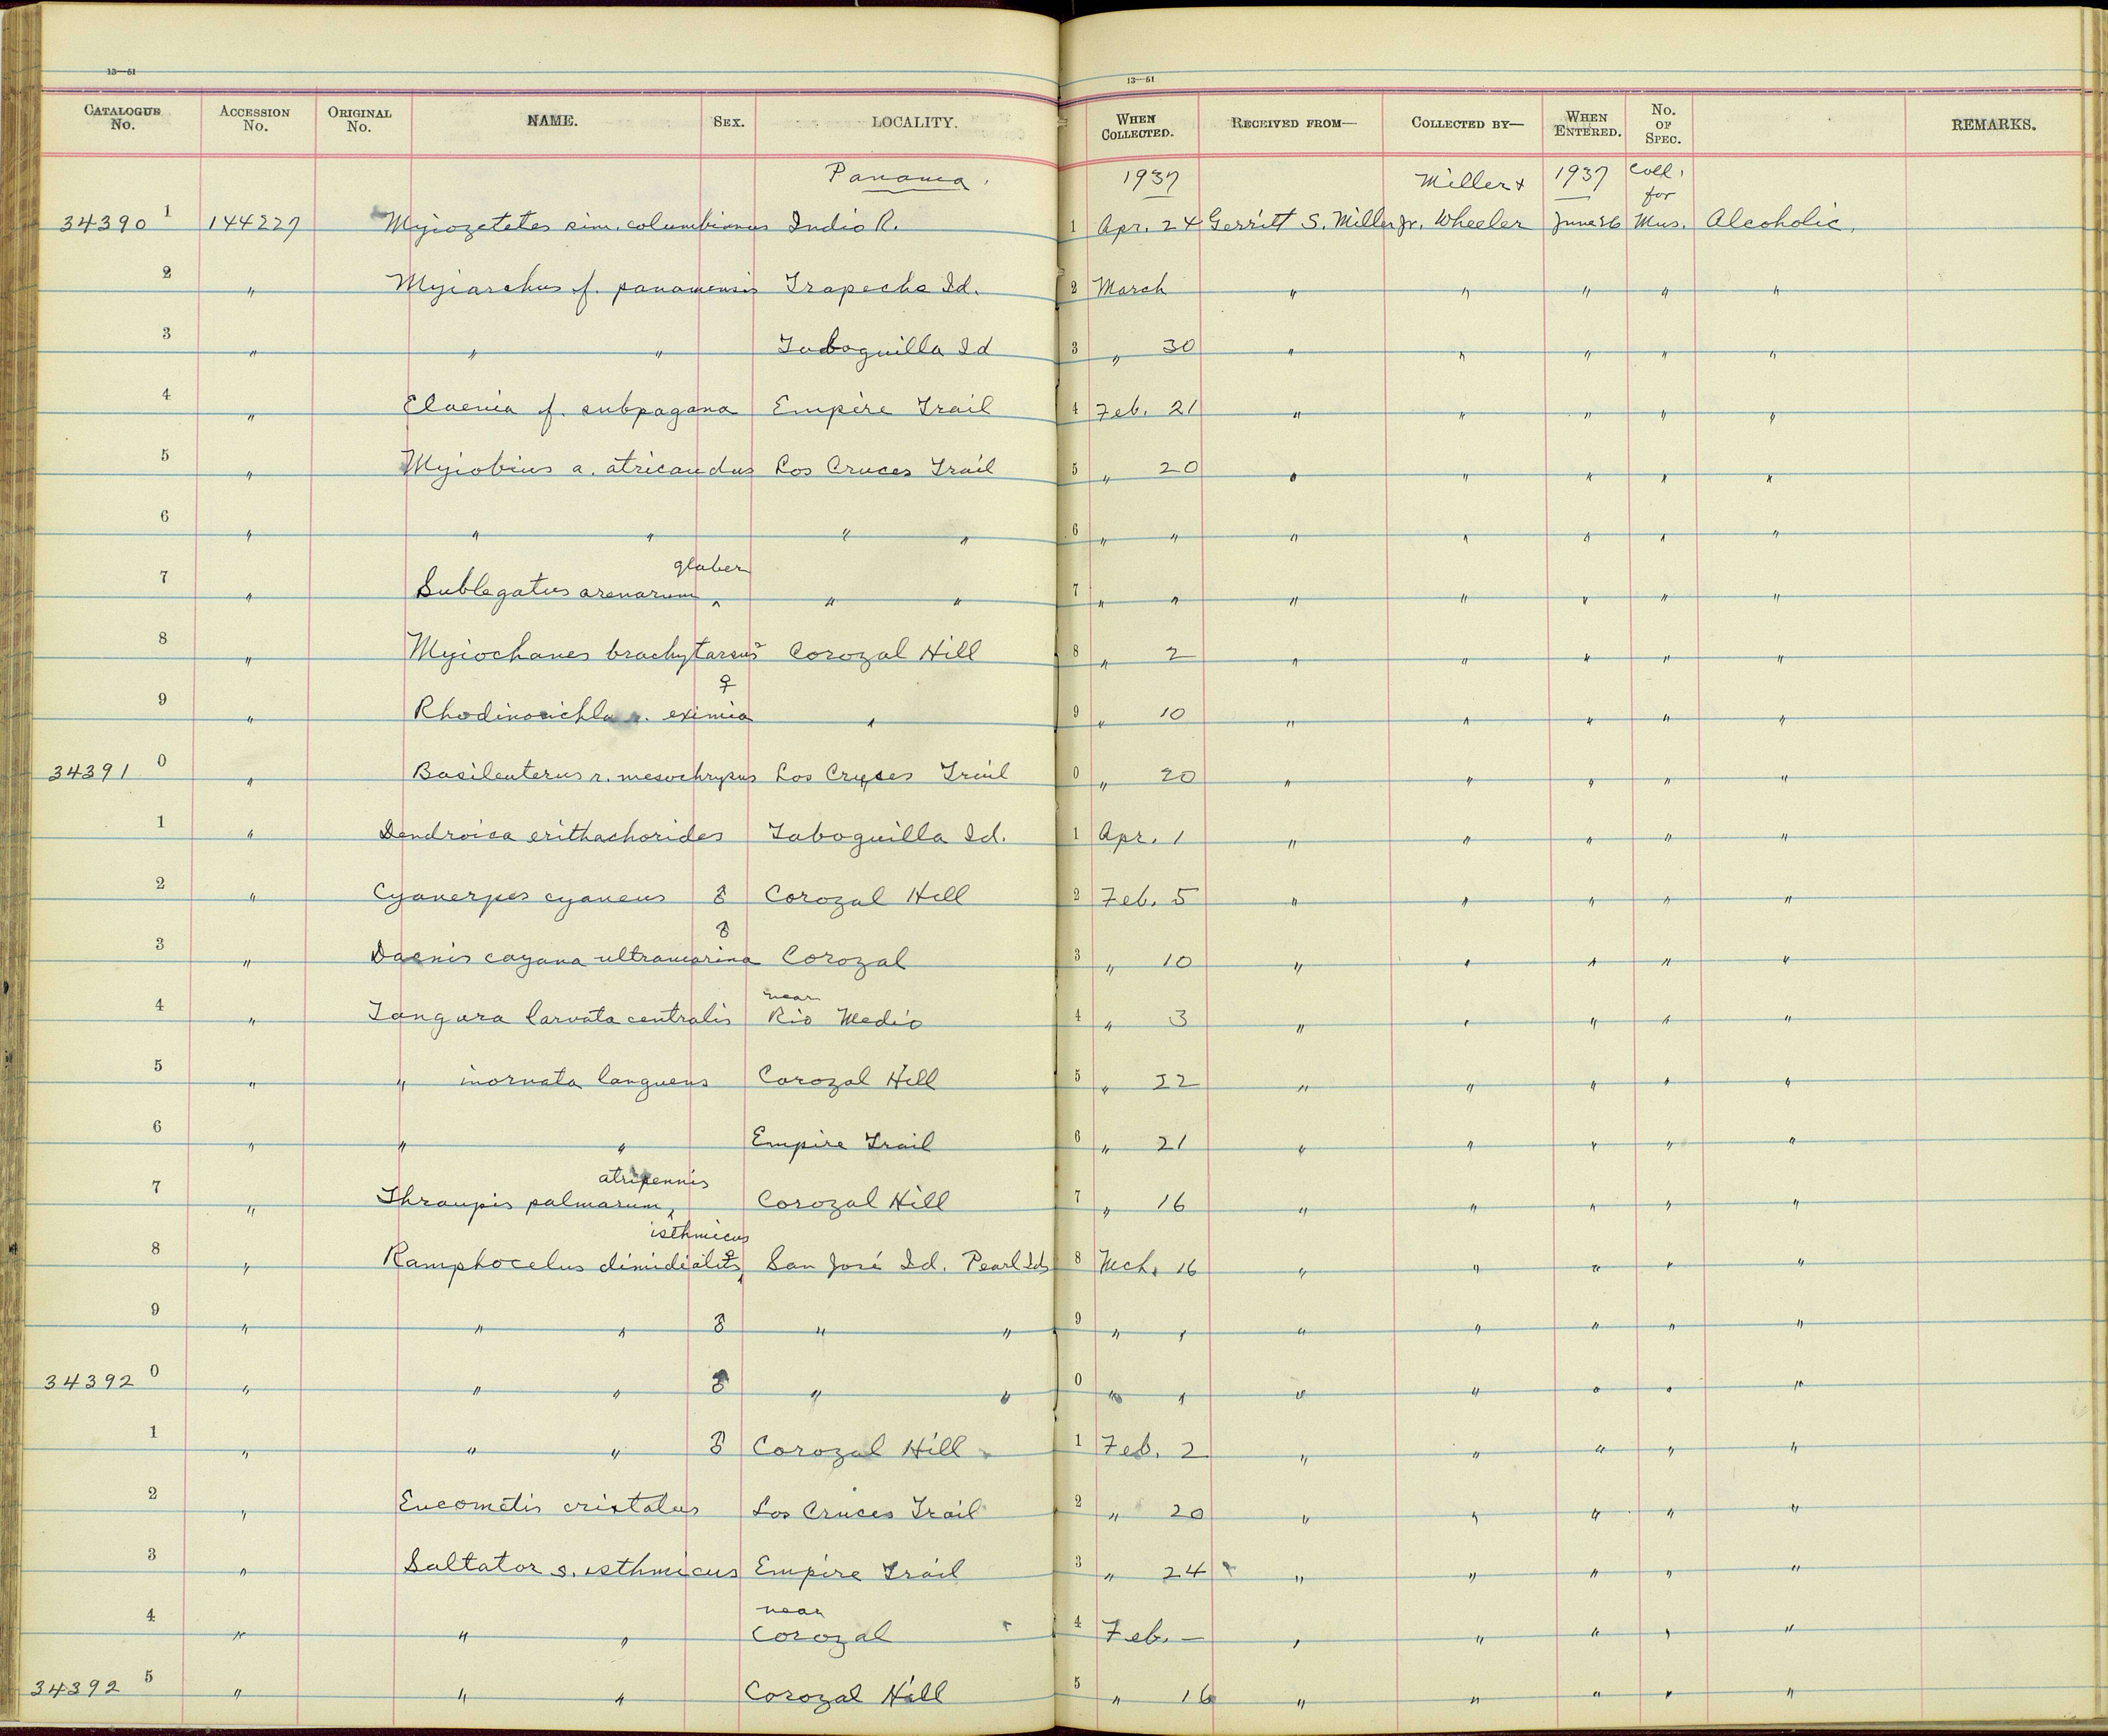 13—61
13—61
CATALOGUE No. ACCESSION No. ORIGINAL No. NAME. SEX. LOCALITY. WHEN COLLECTED. RECEIVED FROM— COLLECTED BY— WHEN ENTERED. No. OF SPEC. REMARKS.
Panama. 1937 Miller & 1937 Coll. for
34390 1 144227 Myiozetetes sim. columbianus Indio R. 1 Apr. 24 Gerritt S. Miller Jr. Wheeler June 26 Mus. Alcoholic.
2 " Myiarchus f. panamensis Trapecha Id. 2 March " " " " "
3 " " " Taboguilla Id 3 " 30 " " " " "
4 " Elaenia f. subpagana Empire Trail 4 Feb. 21 " " " " "
5 " Myiobius a. atricaudus Los Cruces Trail 5 " 20 " " " " "
6 " " " " " 6 " " " " " " "
glaber
7 " Sublegatus arenarum ^ " " 7 " " " " " " "
8 " Myiochanes brachytarsus Corozal Hill 8 " 2 " " " " "
♀
9 " Rhodinocichla r. eximia " 9 " 10 " " " " "
34391 0 " Basileuterus r. mesochrysus Los Cruses Trail 0 " 20 " " " " "
1 " Dendroica erithachorides Taboguilla Id. 1 Apr. 1 " " " " "
2 " Cyanerpes cyaneus ♂ Corozal Hill 2 Feb. 5 " " " " "
♂
3 " Dacnis cayana ultramarina Corozal 3 " 10 " " " " "
near
4 " Tangara larvata centralis Rio Medio 4 " 3 " " " " "
5 " " inornata languens Corozal Hill 5 " 22 " " " " "
6 " " " Empire Trail 6 " 21 " " " " "
atripennis
7 " Thraupis palmarum ^ Corozal Hill 7 " 16 " " " " "
isthmicus
8 " Ramphocelus dimidiatus ^ ♀ San José Id. Pearl Ids 8 Mch. 16 " " " " "
9 " " " ♂ " " 9 " " " " " " "
34392 0 " " " ♂ " " 0 " " " " " " "
1 " " " ♂ Corozal Hill 1 Feb. 2 " " " " "
2 " Eucometis cristatus Los Cruces Trail 2 " 20 " " " " "
3 " Saltator s. isthmicus Empire Trail 3 " 24 " " " " "
near
4 " " " Corozal 4 Feb. — " " " " "
34392 5 " " " Corozal Hill 5 " 16 " " " " "